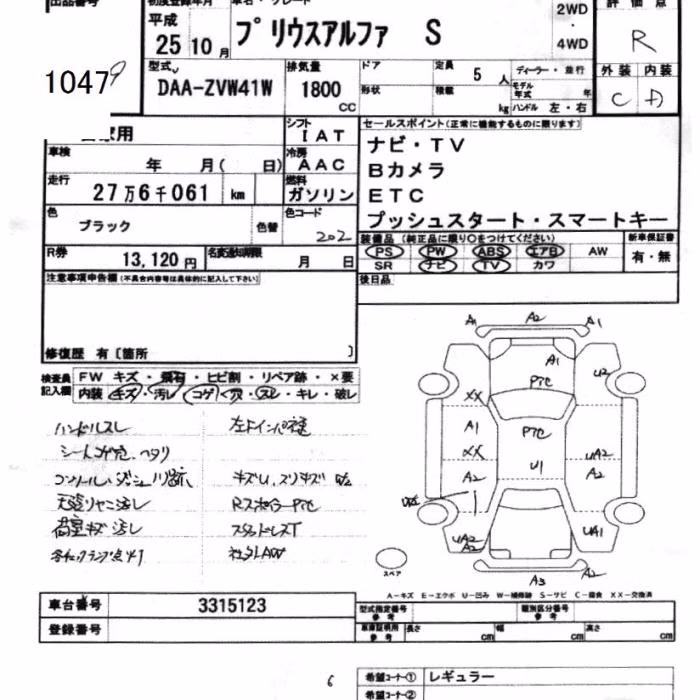 出品番号
初度登録年月
平成
25年10月
車名・グレード
プリウスアルファ S
2WD
・
4WD
評価点
R
10479
型式
DAA-ZVW41W
排気量
1800
CC
ドア
形状
定員
5人
積載
kg
ディーラー・並行
モデル年式
年
ハンドル 左・右
外装
内装
C
D
自家用
シフト
IAT
セールスポイント(正常に機能するものに限ります)
車検
年 月( 日)
冷房
AAC
ナビ・TV
Bカメラ
ETC
プッシュスタート・スマートキー
走行
27万6千061
km
燃料
ガソリン
色
ブラック
色替
色コード
202
装備品 (純正品に限り○をつけてください)
新車保証書
PS
PW
ABS
エアB
AW
有・無
SR
ナビ
TV
カワ
R券
13,120円
名変通知期限
月 日
後日品
注意事項申告欄(不具合内容等は具体的に記入して下さい)
修復歴 有〔箇所 〕
検査員記入欄
FW キズ・飛石・ヒビ割・リペア跡・×要
内装 キズ・汚レ・コゲ・穴・スレ・キレ・破レ
ハンドルスレ
シートコゲ穴、ヘタリ
天張りヤニ汚レ
荷室キズ汚レ
Rスポイラーアセ
スタッドレスT
社外AW
A1
A2
A1
A1
アセ
U2
XX
A1
アセ
XX
A2
U1
UA2
A2
UA2
A2
UA1
スペア
A3
A2
A-キズ E-エクボ U-凹み W-補修跡 S-サビ C-腐食 XX-交換済
車台番号
3315123
登録番号
型式指定番号
参考
類別区分番号
参考
車庫証明用
参考
長さ
cm
幅
cm
高さ
cm
6
希望コーナー①
レギュラー
希望コーナー②